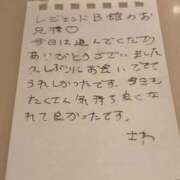 レジェンドB雄のお
兄様♡
今日は遊んでくださり
ありがとうございました
久しぶりにお会いできて
うれしかったです。今日も
たくさん気持ち良くな
れて良かったです。
さわ